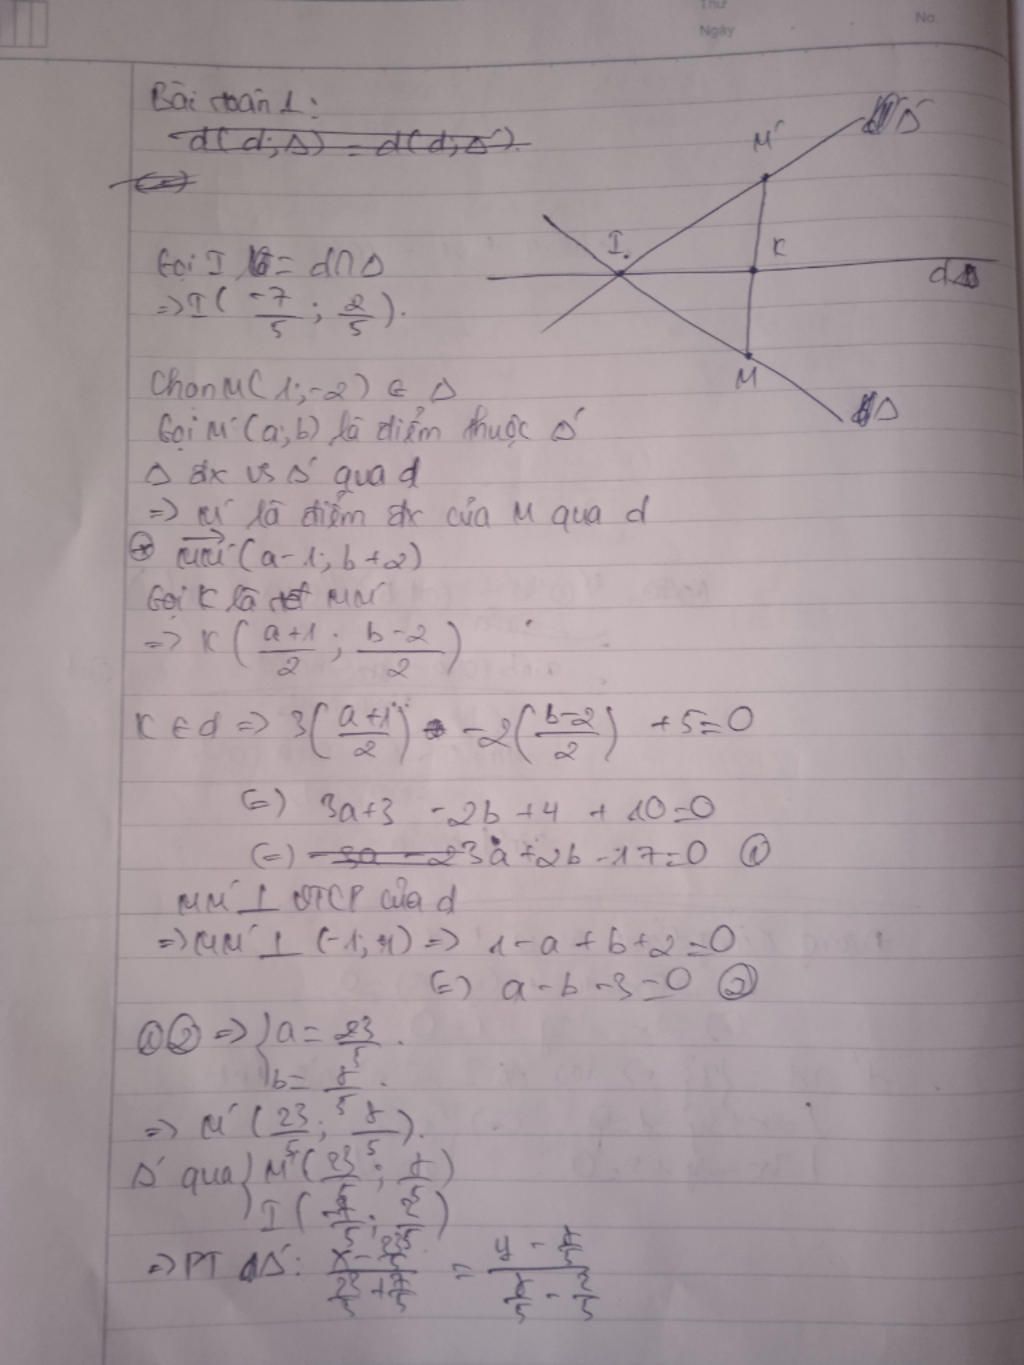 Thứ
Ngày
No.
Bài toán 1:
d(d;Δ) = d(d;Δ').
(=)
Gọi I = d∩Δ
=> I( -7/5 ; 2/5 ).
Chọn M(1;-2) ∈ Δ
Gọi M'(a;b) là điểm thuộc Δ'
Δ đx vs Δ' qua d
=> M' là điểm đx của M qua d
MM'(a-1; b+2)
Gọi K là tđ MM'
=> K( (a+1)/2 ; (b-2)/2 )
K ∈ d => 3( (a+1)/2 ) -2( (b-2)/2 ) +5=0
(=) 3a+3 -2b +4 + 10=0
(=) -3a -2 3a+2b-17=0 ①
MM' ⊥ VTCP của d
=> MM' ⊥ (-1; 1) => 1-a+b+2=0
(=) a-b-3=0 ②
①② => { a= 23/5 .
b= 8/5 .
=> M' ( 23/5 ; 8/5 ).
Δ' qua { M'( 23/5 ; 8/5 )
I( -7/5 ; 2/5 )
=> PT Δ': (x - 23/5)/(23/5 + 7/5) = (y - 8/5)/(8/5 - 2/5)
M'
Δ'
I.
K
d
M
Δ